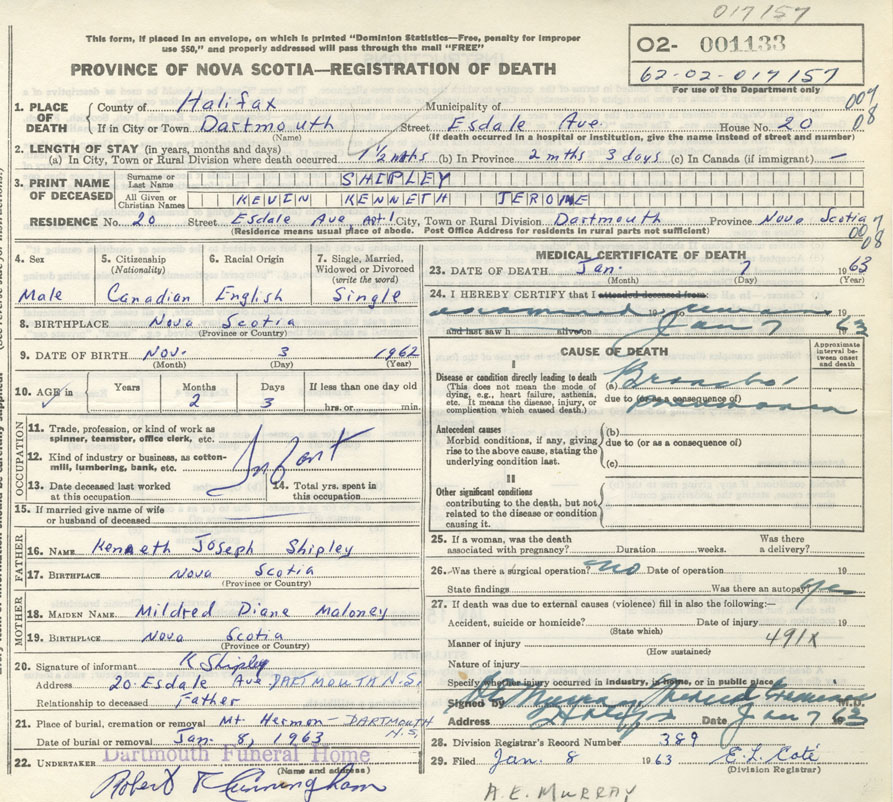 017157
This form, if placed in an envelope, on which is printed "Dominion Statistics—Free, penalty for improper
use $50," and properly addressed will pass through the mail "FREE"
02- 001133
62-02-017157
For use of the Department only
PROVINCE OF NOVA SCOTIA—REGISTRATION OF DEATH
1. PLACE OF DEATH County of Halifax Municipality of
009
08
If in City or Town Dartmouth Street Esdale Ave. House No. 20
(Name) (If death occurred in a hospital or institution, give the name instead of street and number)
2. LENGTH OF STAY (in years, months and days)
(a) In City, Town or Rural Division where death occurred 1 1/2 mths (b) In Province 2 mths 3 days (c) In Canada (if immigrant) —
3. PRINT NAME OF DECEASED Surname or Last Name SHIPLEY
All Given or Christian Names KEVIN KENNETH JEROME
RESIDENCE No. 20 Street Esdale Ave, Apt 1 City, Town or Rural Division Dartmouth Province Nova Scotia
(Residence means usual place of abode. Post Office Address for residents in rural parts not sufficient)
009
08
4. Sex 5. Citizenship (Nationality) 6. Racial Origin 7. Single, Married, Widowed or Divorced (write the word)
Male Canadian English Single
8. BIRTHPLACE Nova Scotia
(Province or Country)
9. DATE OF BIRTH Nov. 3 1962
(Month) (Day) (Year)
10. AGE in Years Months Days If less than one day old
2 3 hrs. or min.
OCCUPATION
11. Trade, profession, or kind of work as
spinner, teamster, office clerk, etc.
Infant
12. Kind of industry or business, as cotton-
mill, lumbering, bank, etc.
13. Date deceased last worked
at this occupation
14. Total yrs. spent in
this occupation
15. If married give name of wife
or husband of deceased
FATHER
16. NAME Kenneth Joseph Shipley
17. BIRTHPLACE Nova Scotia
(Province or Country)
MOTHER
18. MAIDEN NAME Mildred Diane Maloney
19. BIRTHPLACE Nova Scotia
(Province or Country)
20. Signature of informant K Shipley
Address 20 Esdale Ave DARTMOUTH N.S.
Relationship to deceased Father
21. Place of burial, cremation or removal Mt. Hermon - DARTMOUTH N.S.
Date of burial or removal Jan. 8, 1963
Dartmouth Funeral Home
22. UNDERTAKER
(Name and address)
Robert K Cunningham
MEDICAL CERTIFICATE OF DEATH
23. DATE OF DEATH Jan. 7 1963
(Month) (Day) (Year)
24. I HEREBY CERTIFY that I attended deceased from:
examined remains 19
and last saw h alive on Jan 7 1963
CAUSE OF DEATH
Approximate interval between onset and death
I
Disease or condition directly leading to death
(This does not mean the mode of
dying, e.g., heart failure, asthenia,
etc. It means the disease, injury, or
complication which caused death.)
(a) Broncho
due to (or as a consequence of)
pneumonia
Antecedent causes
Morbid conditions, if any, giving
rise to the above cause, stating the
underlying condition last.
(b)
due to (or as a consequence of)
(c)
II
Other significant conditions
contributing to the death, but not
related to the disease or condition
causing it.
25. If a woman, was the death
associated with pregnancy? Duration weeks. Was there
a delivery?
26. Was there a surgical operation? no Date of operation 19
State findings Was there an autopsy? yes
27. If death was due to external causes (violence) fill in also the following:—
Accident, suicide or homicide? Date of injury 19
(State which)
Manner of injury 491X
(How sustained)
Nature of injury
Specify whether injury occurred in industry, in home, or in public place.
Signed by Medical Examiner M.D.
Address Halifax Date Jan 7 63
28. Division Registrar's Record Number 389
29. Filed Jan. 8 1963 E.L. Coté
(Division Registrar)
A.E. MURRAY